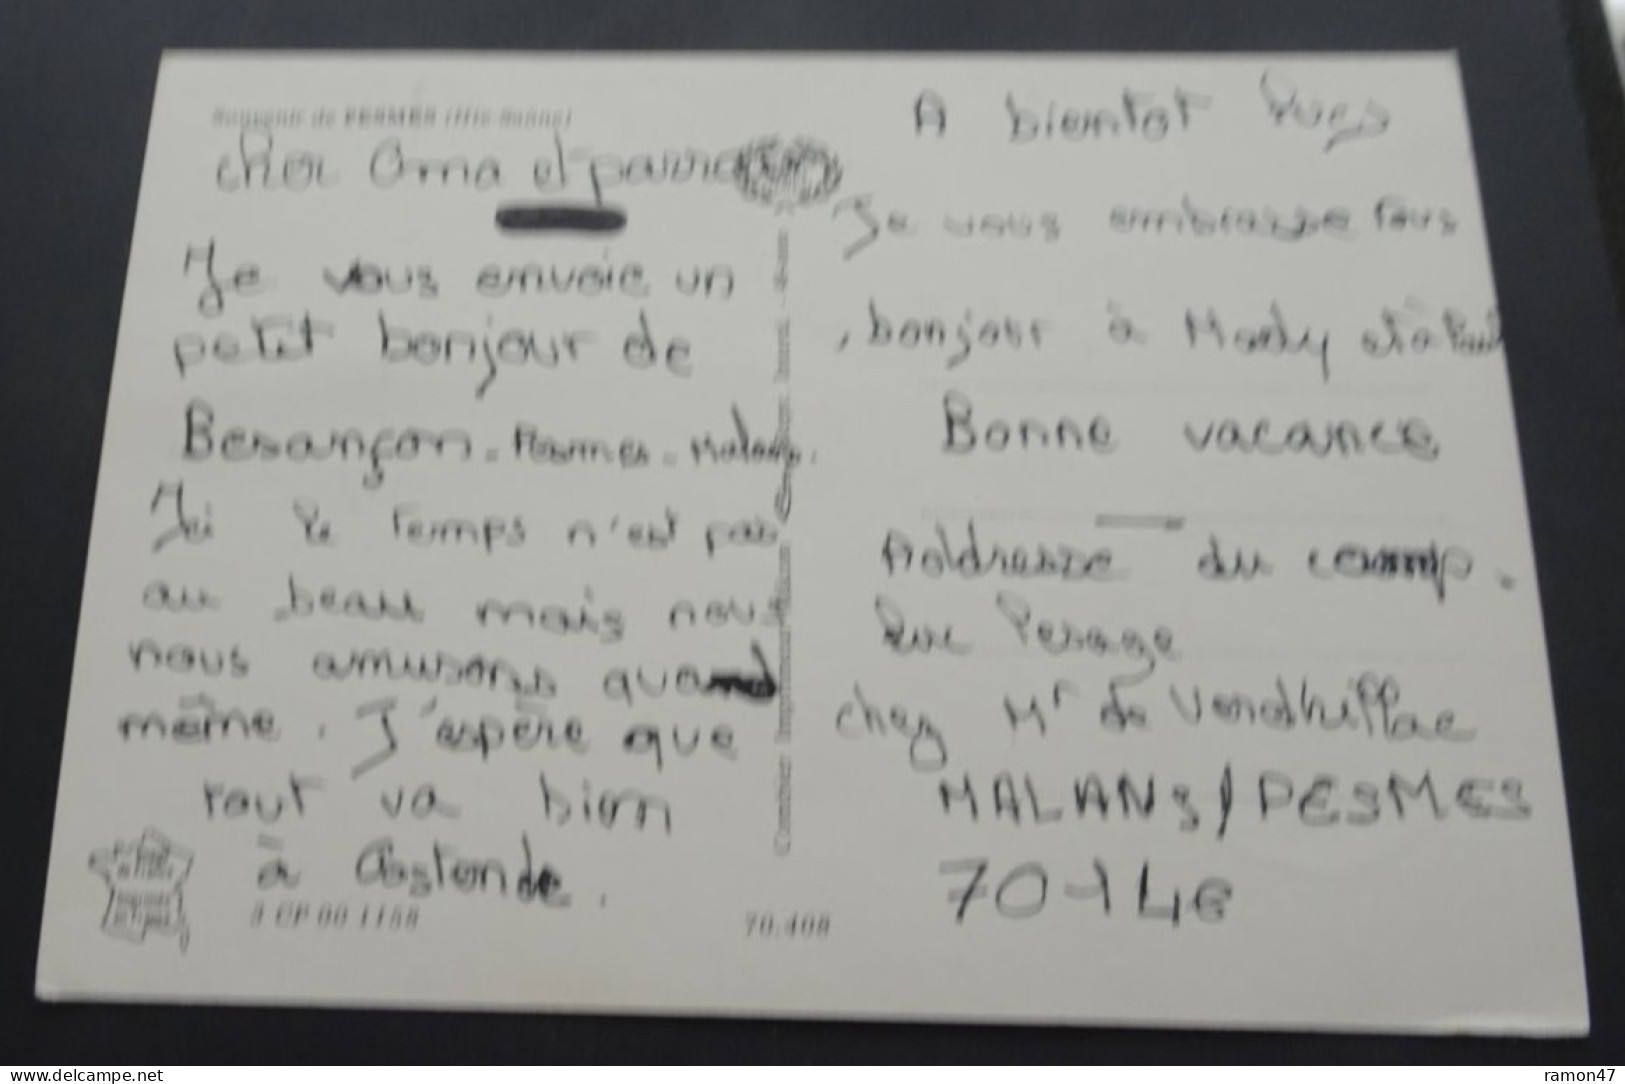 Souvenir de PESMES (Hte-Saône)
cher Oma et parra
Je vous envoie un
petit bonjour de
Besançon - Pesmes - Malans.
Ici le temps n'est pas
au beau mais nous
nous amusons quand
même. J'espère que
tout va bien
à Oostende.
3 CP 00 1158
70.408
Combier Imprimeur Mâcon
A bientot
Je vous embrasse tous
, bonjour à Mady et à Paul
Bonne vacance
Addresse du camp.
Luc Pesage
chez Mr de Verdhiffac
MALANS / PESMES
70140
www.delcampe.net
ramon47